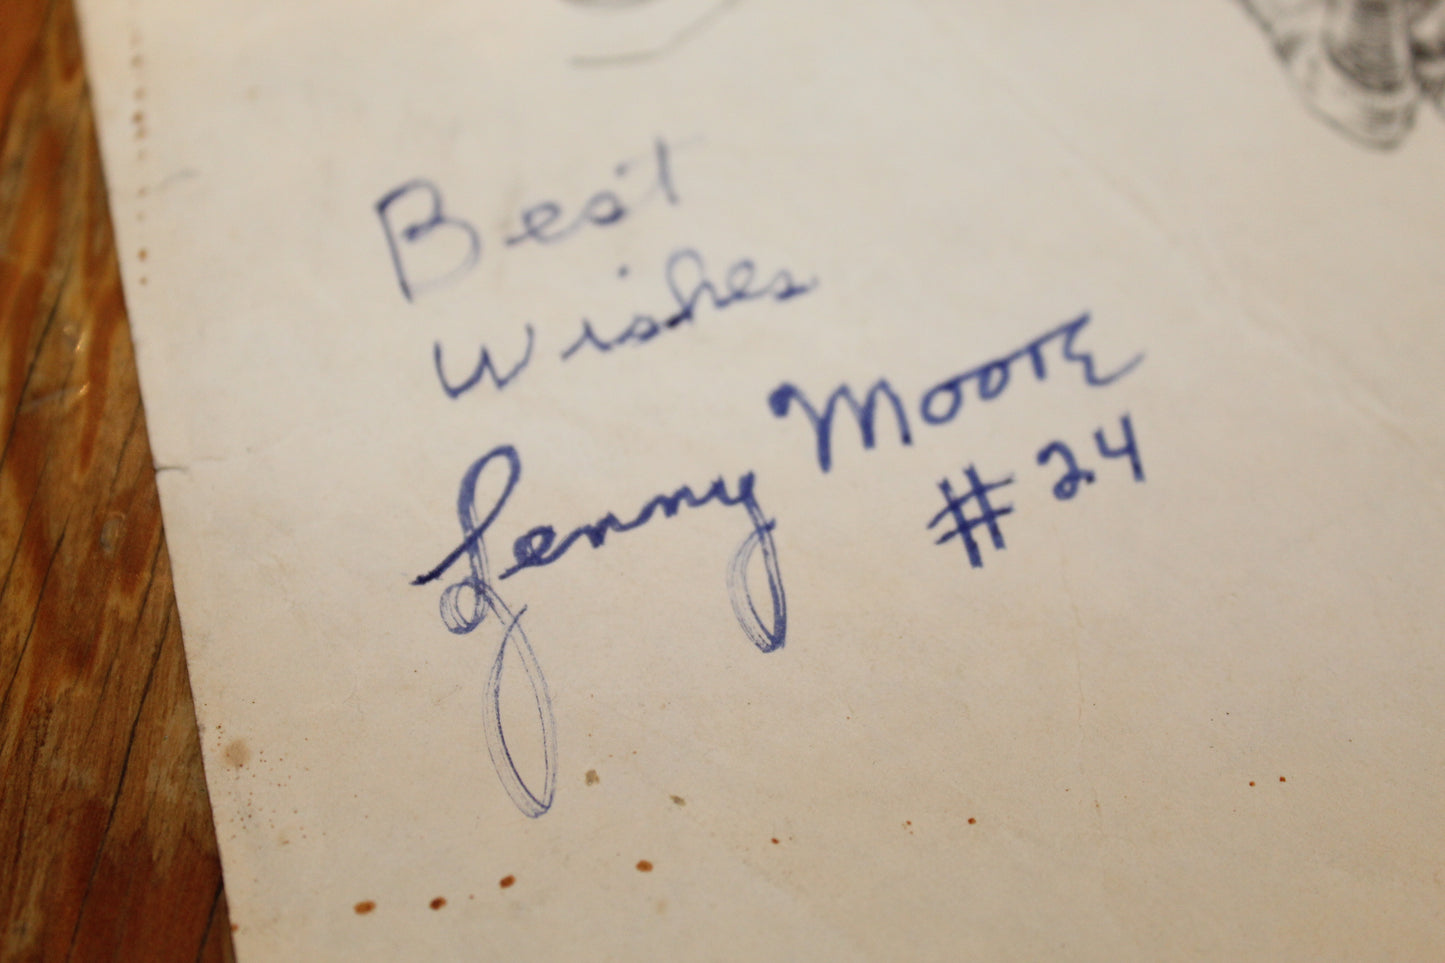 Best
Wishes
Lenny Moore
#24